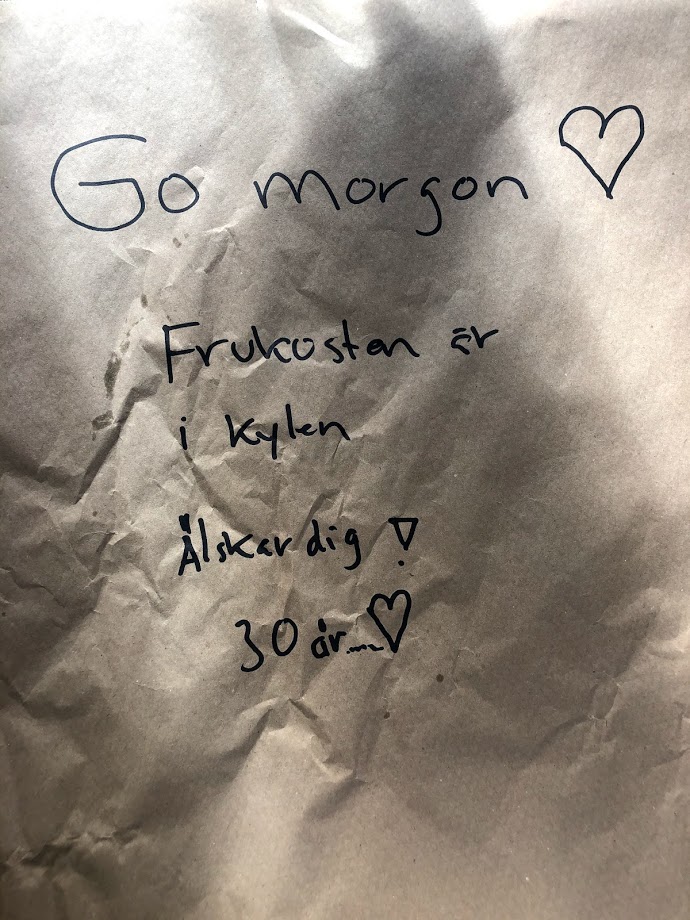 Go morgon ♡
Frukosten är
i kylen
Älskar dig !
30 år.... ♡